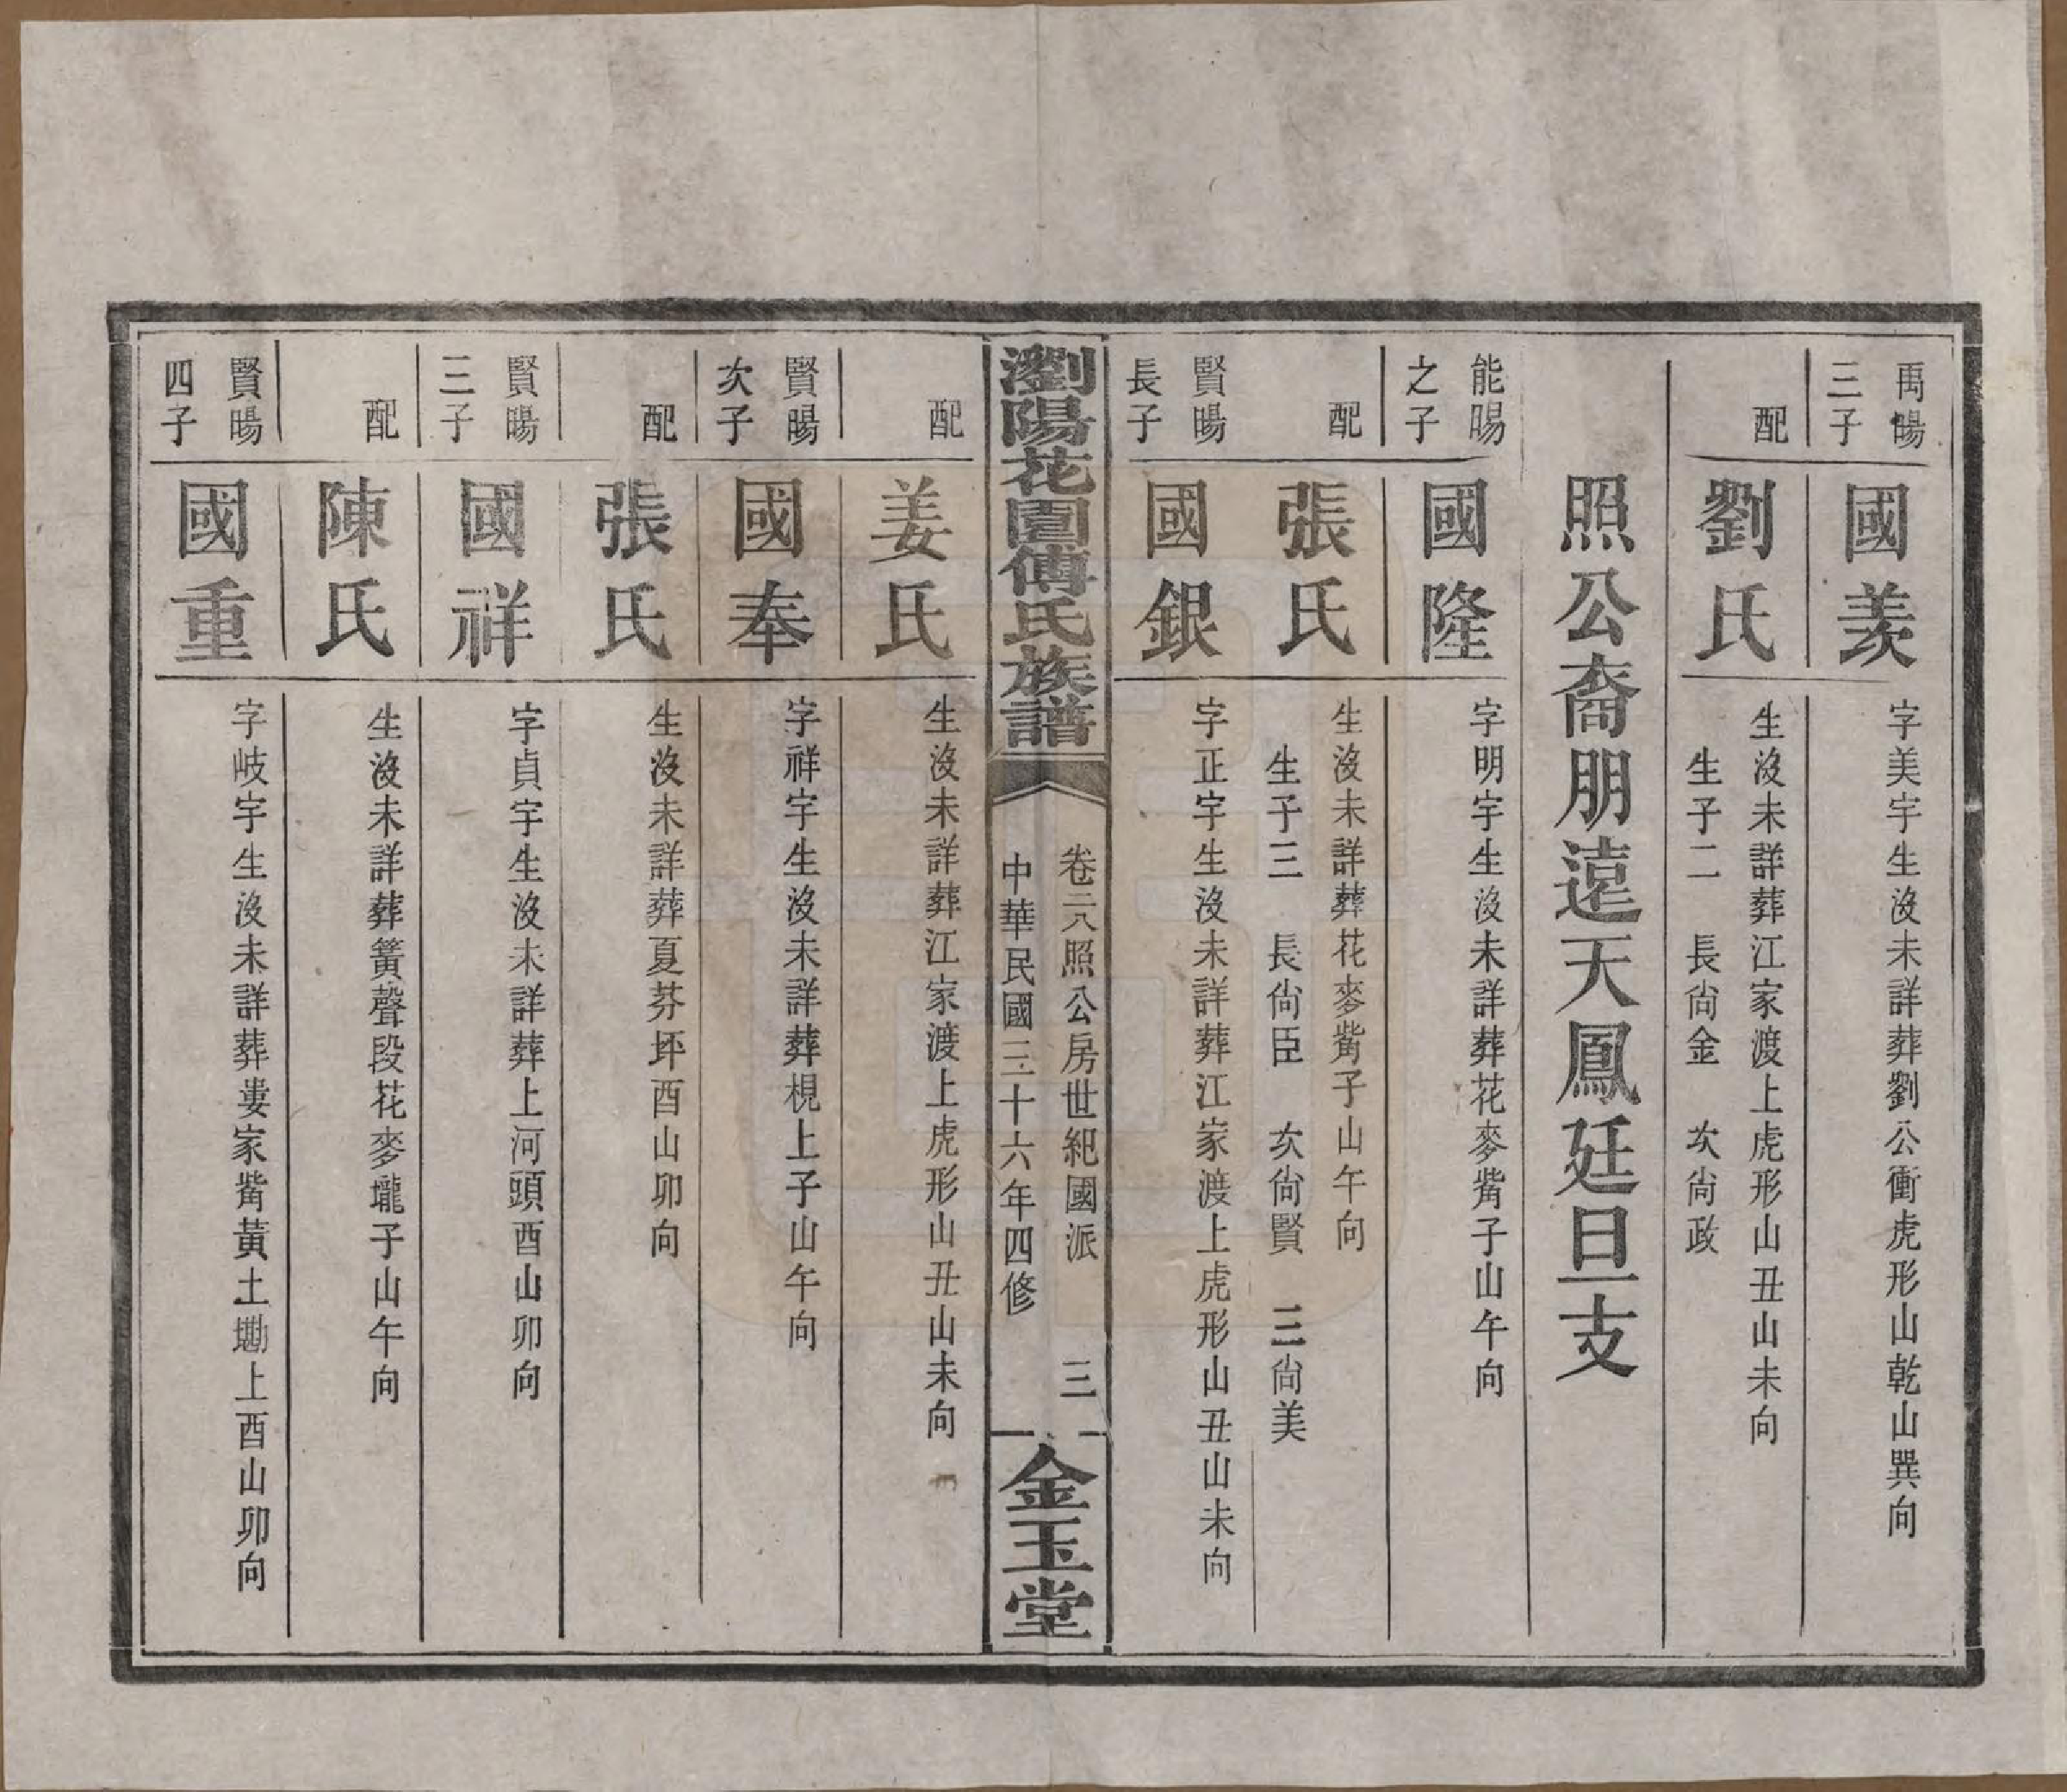 禹暘
三子
國羨
字美宇生沒未詳葬劉公衝虎形山乾山巽向
配
劉氏
生沒未詳葬江家渡上虎形山丑山未向
生子二　長尙金　次尙政
照公裔朋遠天鳳廷旦一支
能暘
之子
國隆
字明宇生沒未詳葬花麥觜子山午向
配
張氏
生沒未詳葬花麥觜子山午向
生子三　長尙臣　次尙賢　三尙美
賢暘
長子
國銀
字正宇生沒未詳葬江家渡上虎形山丑山未向
瀏陽花園傅氏族譜
卷二八照公房世紀國派　三
中華民國三十六年四修
金玉堂
配
姜氏
生沒未詳葬江家渡上虎形山丑山未向
賢暘
次子
國奉
字祥宇生沒未詳葬梘上子山午向
配
張氏
生沒未詳葬夏芬坏酉山卯向
賢暘
三子
國祥
字貞宇生沒未詳葬上河頭酉山卯向
配
陳氏
生沒未詳葬簧聲段花麥壠子山午向
賢暘
四子
國重
字岐宇生沒未詳葬婁家觜黃土墈上酉山卯向